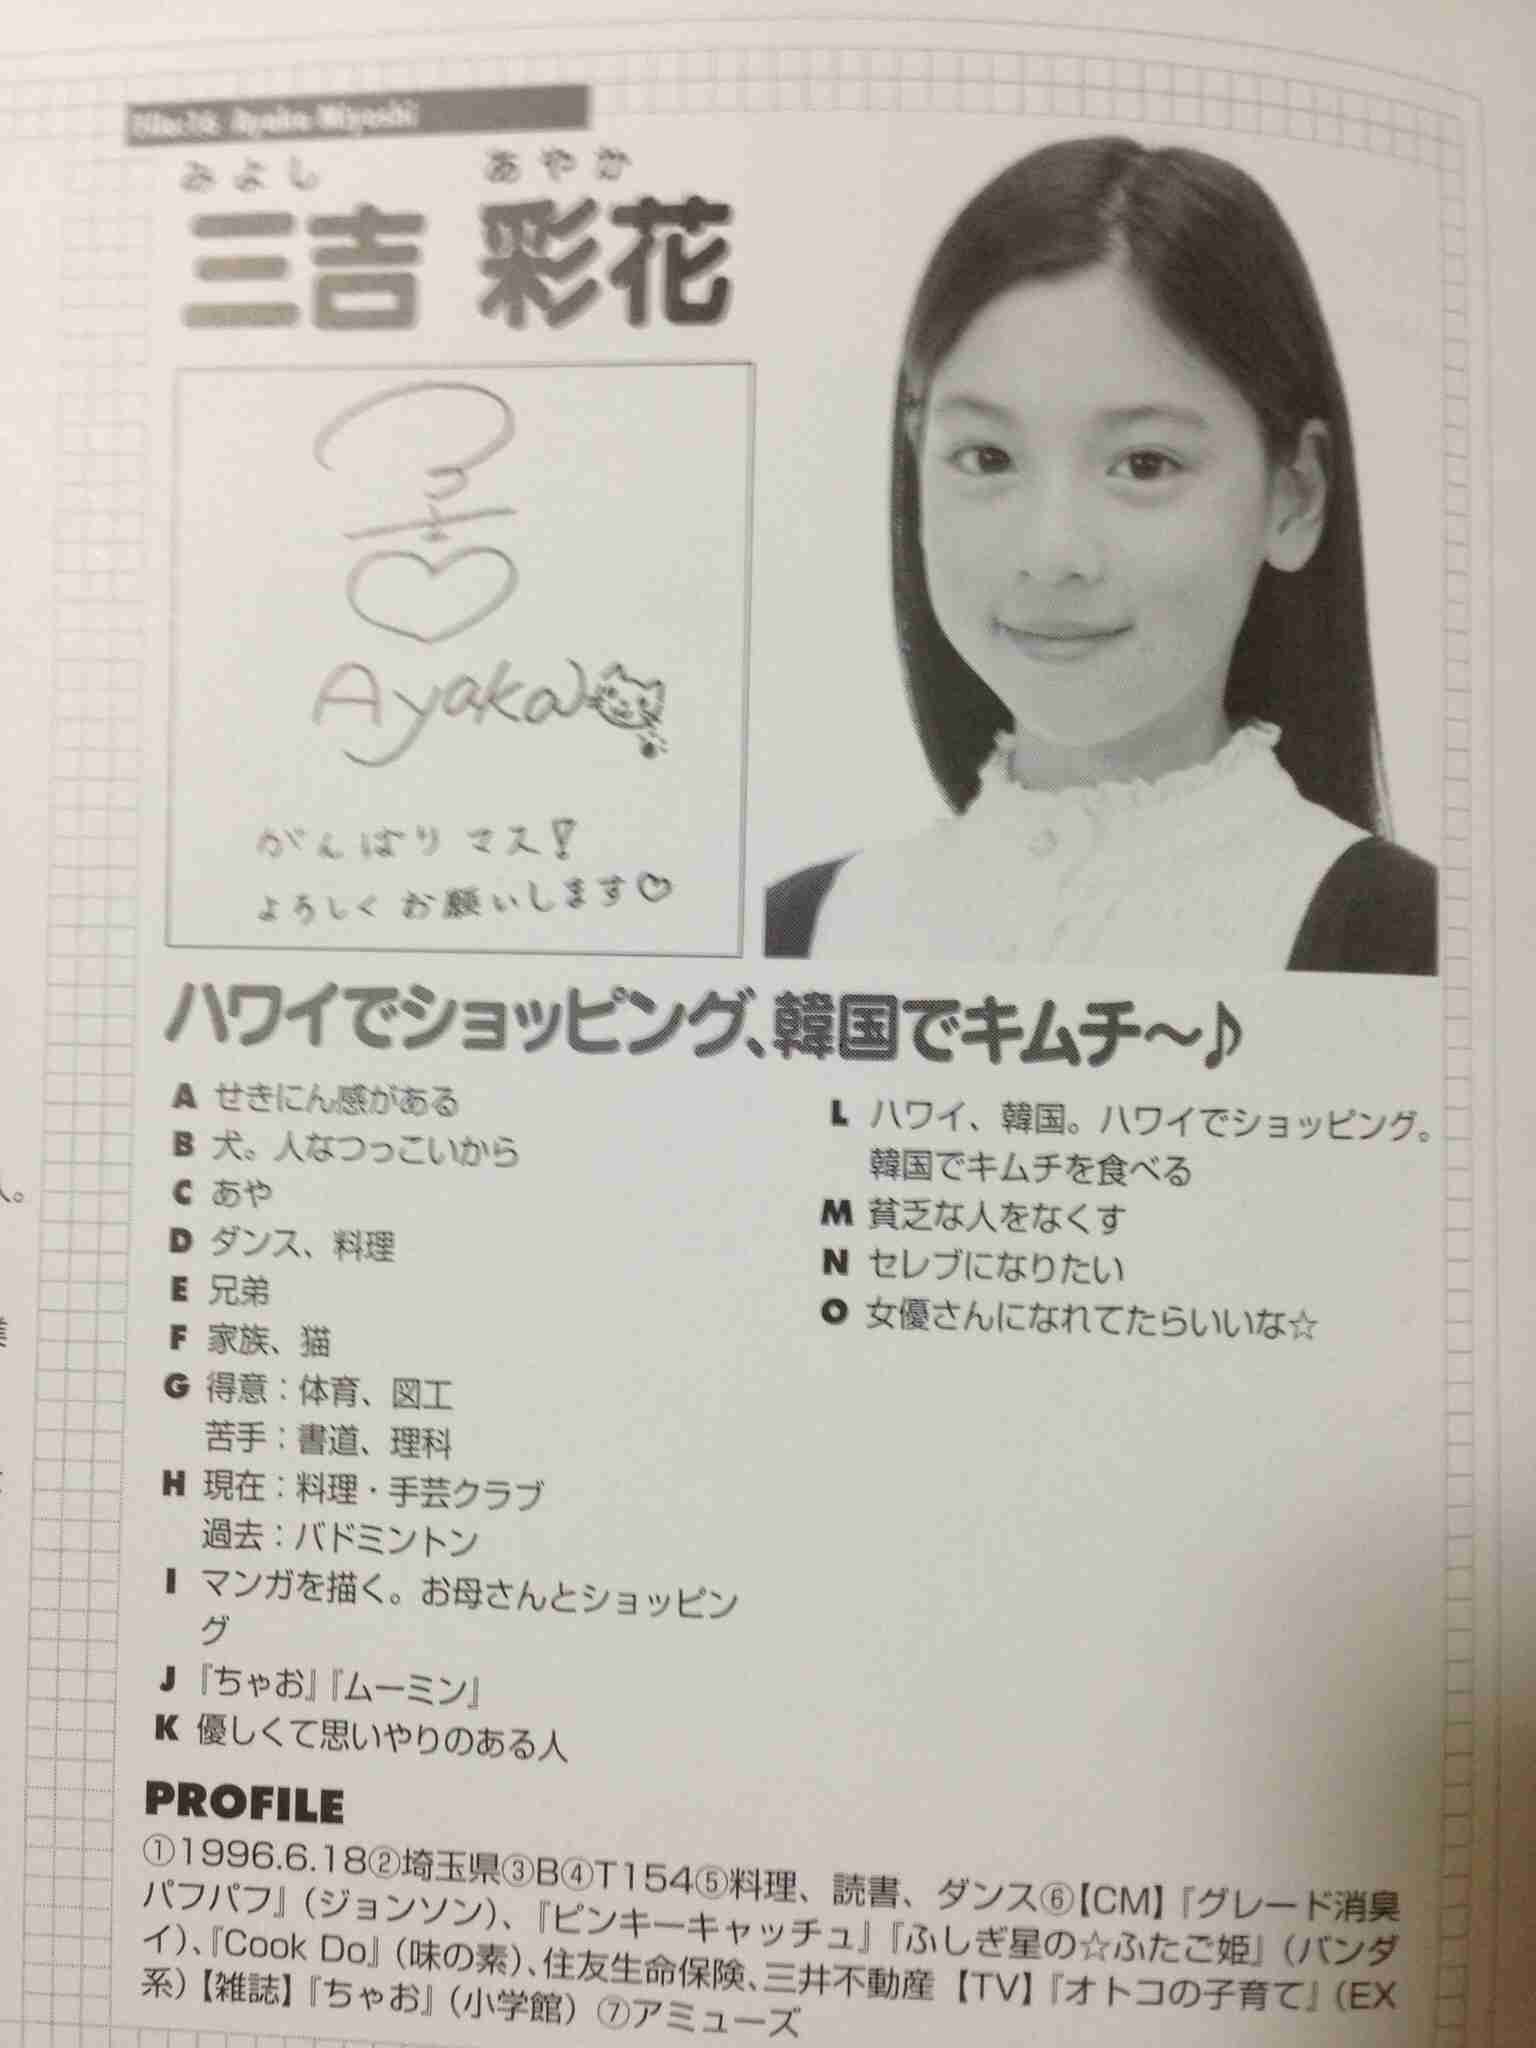 Ayaka Miyoshi
みよし あやか
三吉 彩花
Ayaka
がんばりマス!
よろしくお願いします♡
ハワイでショッピング、韓国でキムチ〜♪
A せきにん感がある
B 犬。人なつっこいから
C あや
D ダンス、料理
E 兄弟
F 家族、猫
G 得意：体育、図工
苦手：書道、理科
H 現在：料理・手芸クラブ
過去：バドミントン
I マンガを描く。お母さんとショッピン
グ
J 『ちゃお』『ムーミン』
K 優しくて思いやりのある人
L ハワイ、韓国。ハワイでショッピング。
韓国でキムチを食べる
M 貧乏な人をなくす
N セレブになりたい
O 女優さんになれてたらいいな☆
PROFILE
①1996.6.18②埼玉県③B④T154⑤料理、読書、ダンス⑥【CM】『グレード消臭
パフパフ』（ジョンソン）、『ピンキーキャッチュ』『ふしぎ星の☆ふたご姫』（バンダ
イ）、『Cook Do』（味の素）、住友生命保険、三井不動産【TV】『オトコの子育て』（EX
系）【雑誌】『ちゃお』（小学館）⑦アミューズ